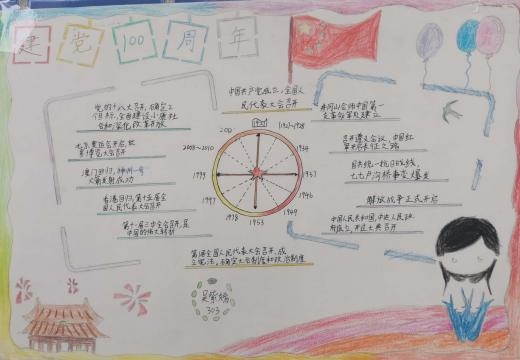 建党100周年
中国共产党成立,全国人
民代表大会召开
党的十八大召开,确定了
目标,全面建设小康社
会和深化改革开放
井冈山会师中国第一
支革命军及建立
七
召开遵义会议,中国红
军开启长征之路
澳门回归,神州一号
火箭发射成功
国共统一抗日战线,
七七卢沟桥事变爆发
香港回归,第十五届全
国人民代表大会召开
解放战争正式开启
第十一届三中全会召开,是
中国的伟大转折
中国人民共和国,中央人民政
府成立,开国大典召开
第一届全国人民代表大会召开,成
立宪法,确定大会制度和政治制度
1921
1927~1928
1934
1937
1946
1949
1953
1978
1997
1999
2008~2010
2012
303